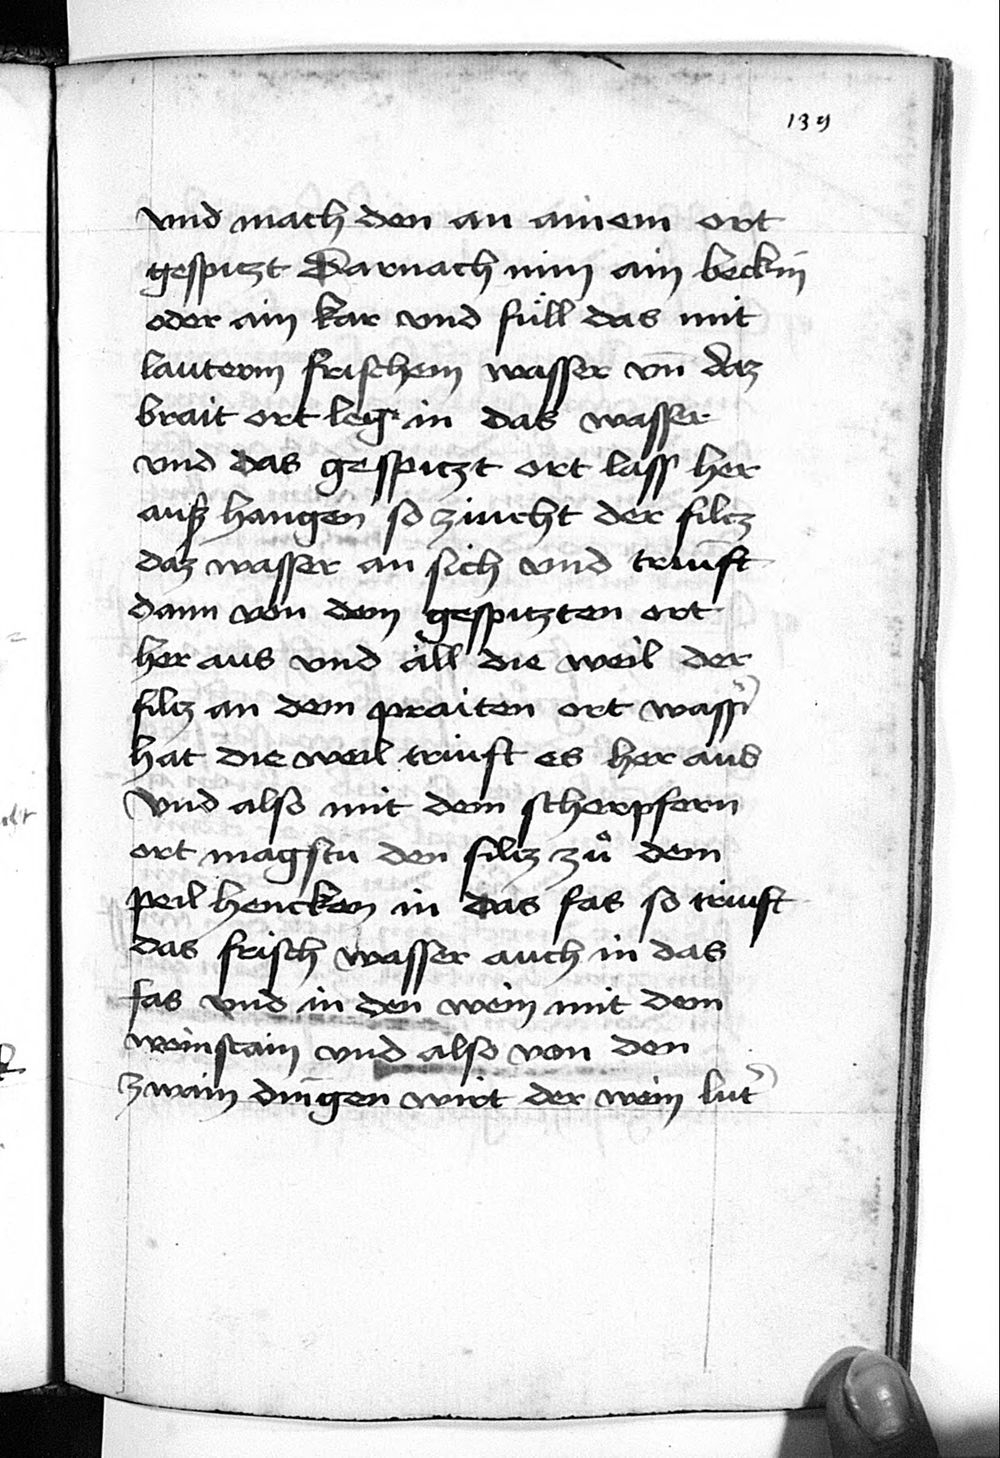 139
vnd mach den an ainem ort
gespitzt Darnach nim ain beckin
oder ain kar vnd füll das mit
lauterm frischem wasser vn̄ daz
brait ort leg in das wasser
vnd das gespitzt ort lass her
auß hangen so ziucht der filcz
daz wasser an sich vnd triuft
dann von dem gespitzten ort
her aus vnd all die weil der
filcz an dem praiten ort wasser
hat die weil triuft es her aus
Vnd also mit dem scherpfern
ort magstu den filcz zů dem
peil hencken in das fas so triuft
das frisch wasser auch in das
fas vnd in den wein mit dem
weinstain vnd also von den
zwain dingen wirt der wein lut̓